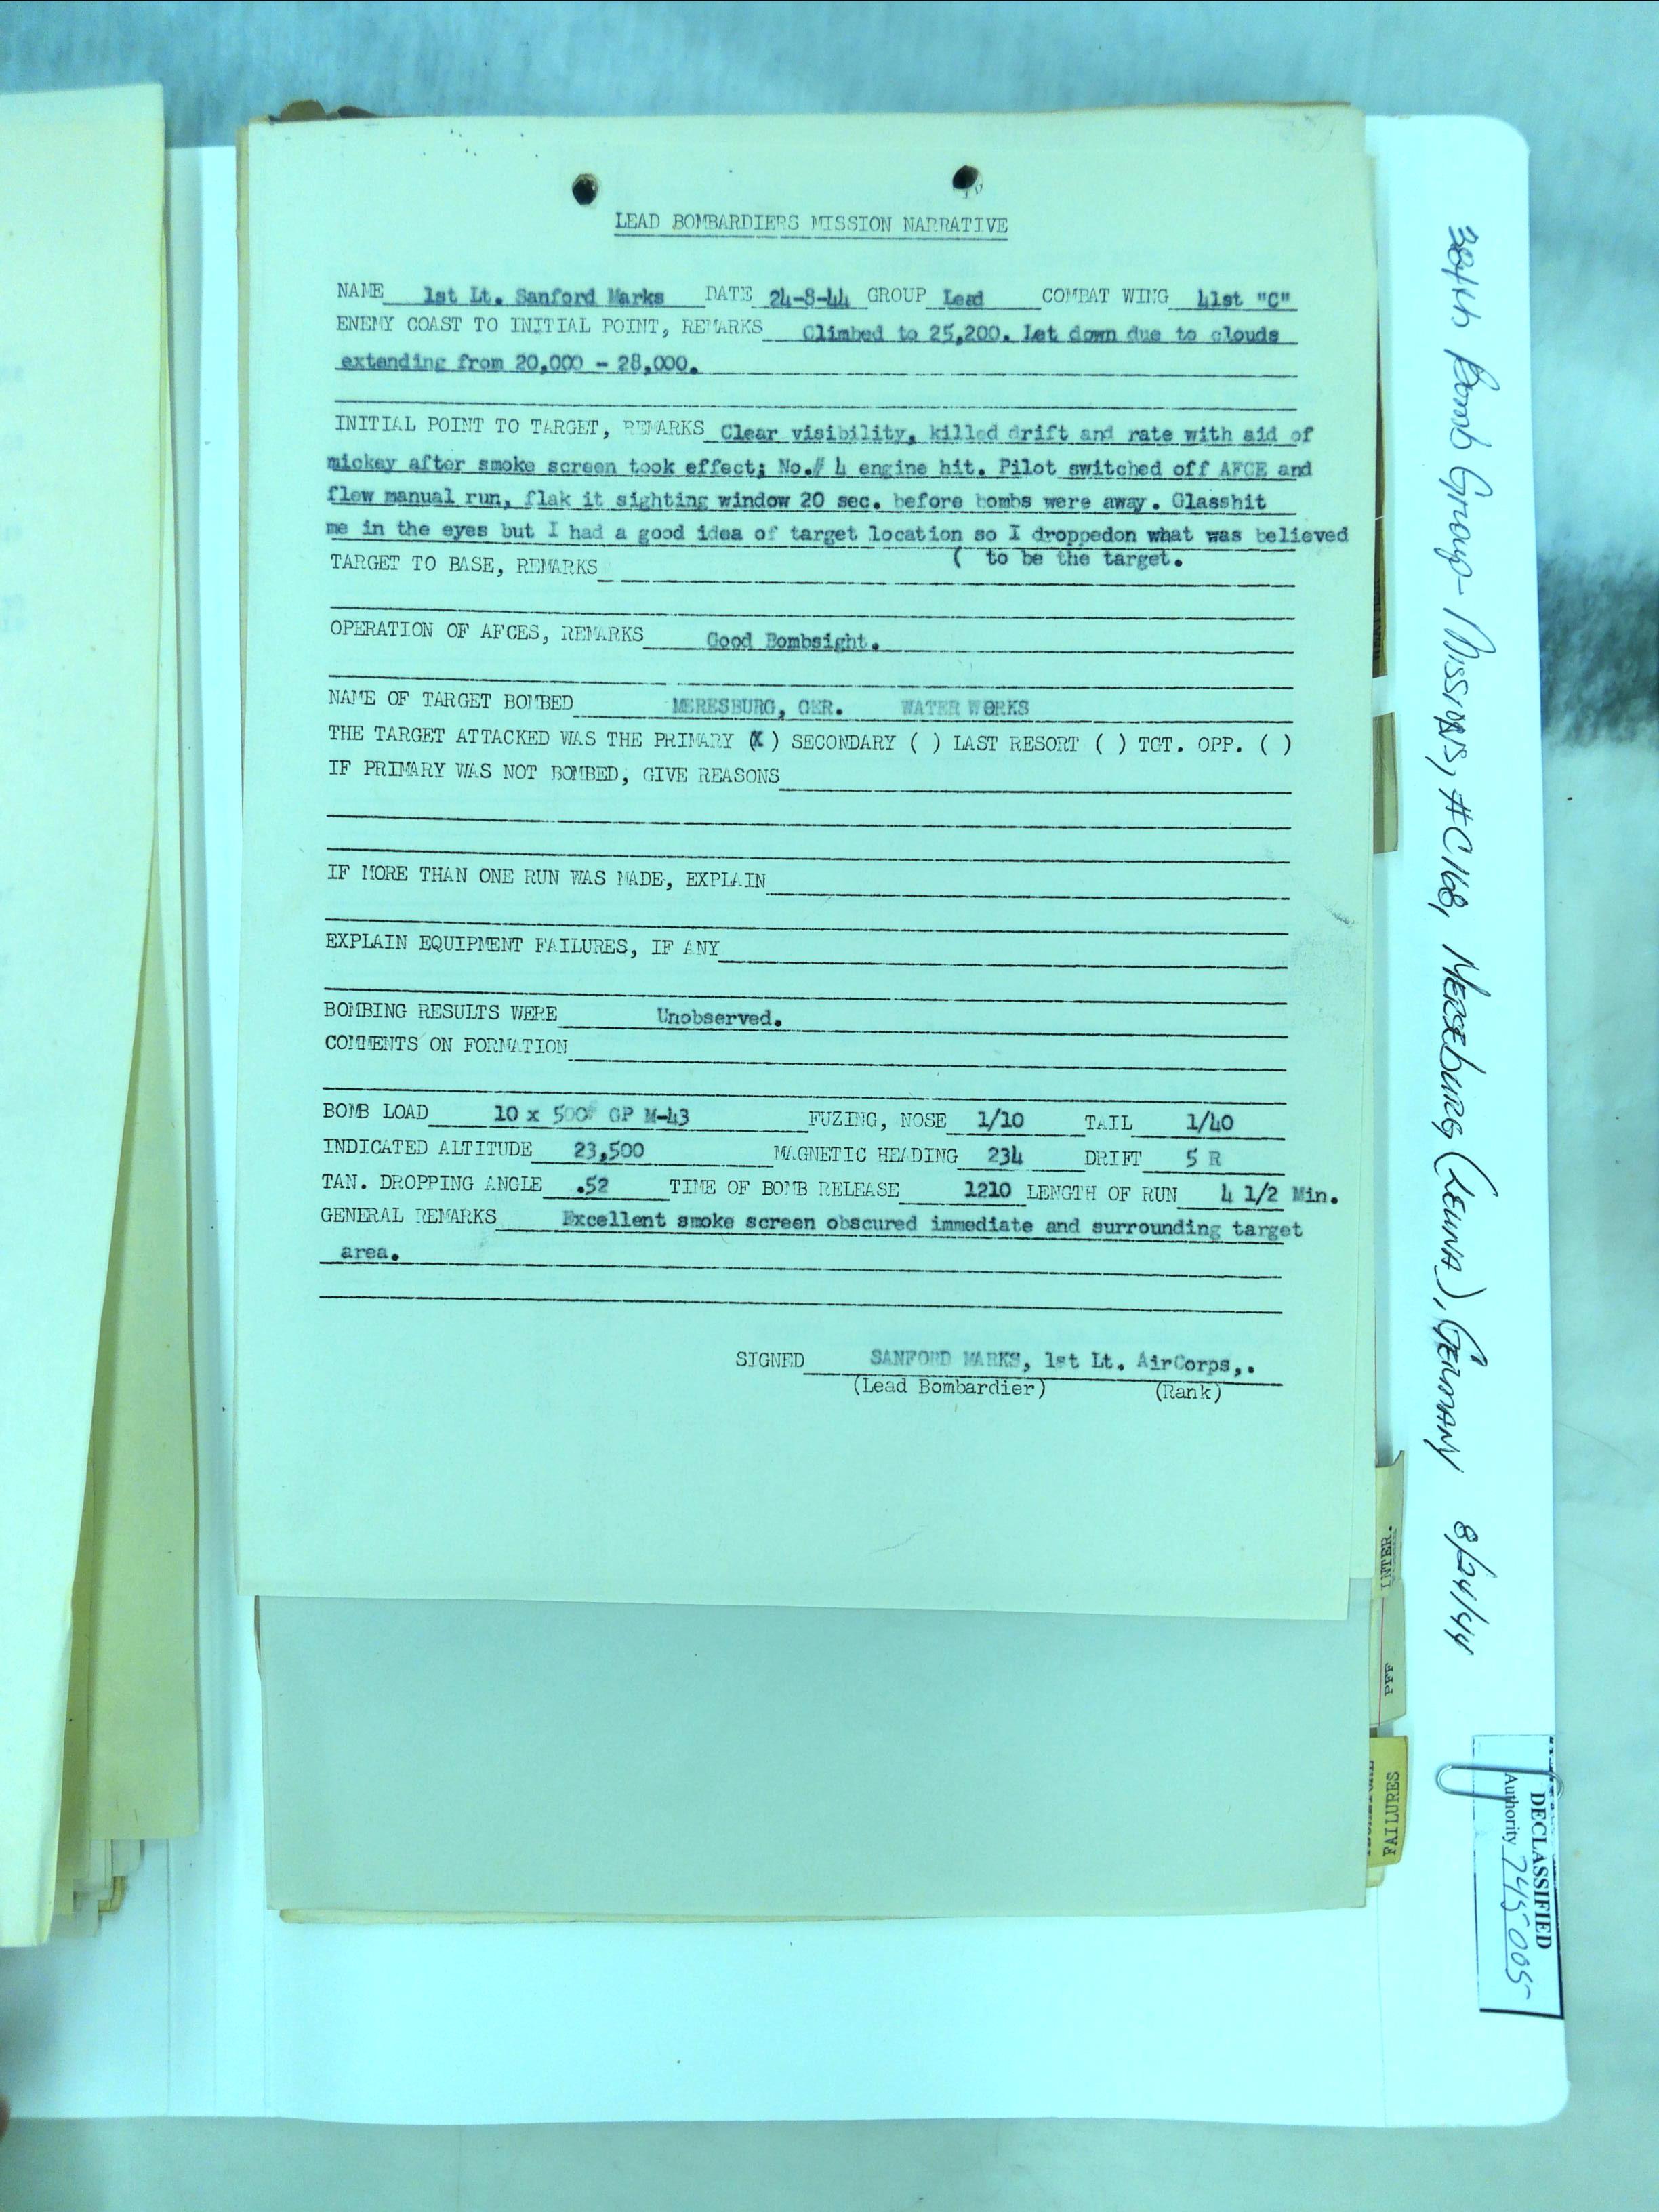 LEAD BOMBARDIERS MISSION NARRATIVE
NAME 1st Lt. Sanford Marks DATE 24-8-44 GROUP Lead COMBAT WING 41st "C"
ENEMY COAST TO INITIAL POINT, REMARKS Climbed to 25,200. Let down due to clouds
extending from 20,000 - 28,000.
INITIAL POINT TO TARGET, REMARKS Clear visibility, killed drift and rate with aid of
mickey after smoke screen took effect; No.# 4 engine hit. Pilot switched off AFCE and
flew manual run, flak it sighting window 20 sec. before bombs were away. Glasshit
me in the eyes but I had a good idea of target location so I droppedon what was believed
( to be the target.
TARGET TO BASE, REMARKS
OPERATION OF AFCES, REMARKS Good Bombsight.
NAME OF TARGET BOMBED MERESBURG, GER. WATER WORKS
THE TARGET ATTACKED WAS THE PRIMARY (X) SECONDARY ( ) LAST RESORT ( ) TGT. OPP. ( )
IF PRIMARY WAS NOT BOMBED, GIVE REASONS
IF MORE THAN ONE RUN WAS MADE, EXPLAIN
EXPLAIN EQUIPMENT FAILURES, IF ANY
BOMBING RESULTS WERE Unobserved.
COMMENTS ON FORMATION
BOMB LOAD 10 x 500# GP M-43 FUZING, NOSE 1/10 TAIL 1/40
INDICATED ALTITUDE 23,500 MAGNETIC HEADING 234 DRIFT 5 R
TAN. DROPPING ANGLE .52 TIME OF BOMB RELEASE 1210 LENGTH OF RUN 4 1/2 Min.
GENERAL REMARKS Excellent smoke screen obscured immediate and surrounding target
area.
SIGNED SANFORD MARKS, 1st Lt. AirCorps,.
(Lead Bombardier) (Rank)
384th Bomb Group - Missions, #C168, Merseburg (Leuna), Germany 8/24/44
INTER.
PFF
FAILURES
DECLASSIFIED
Authority 745005